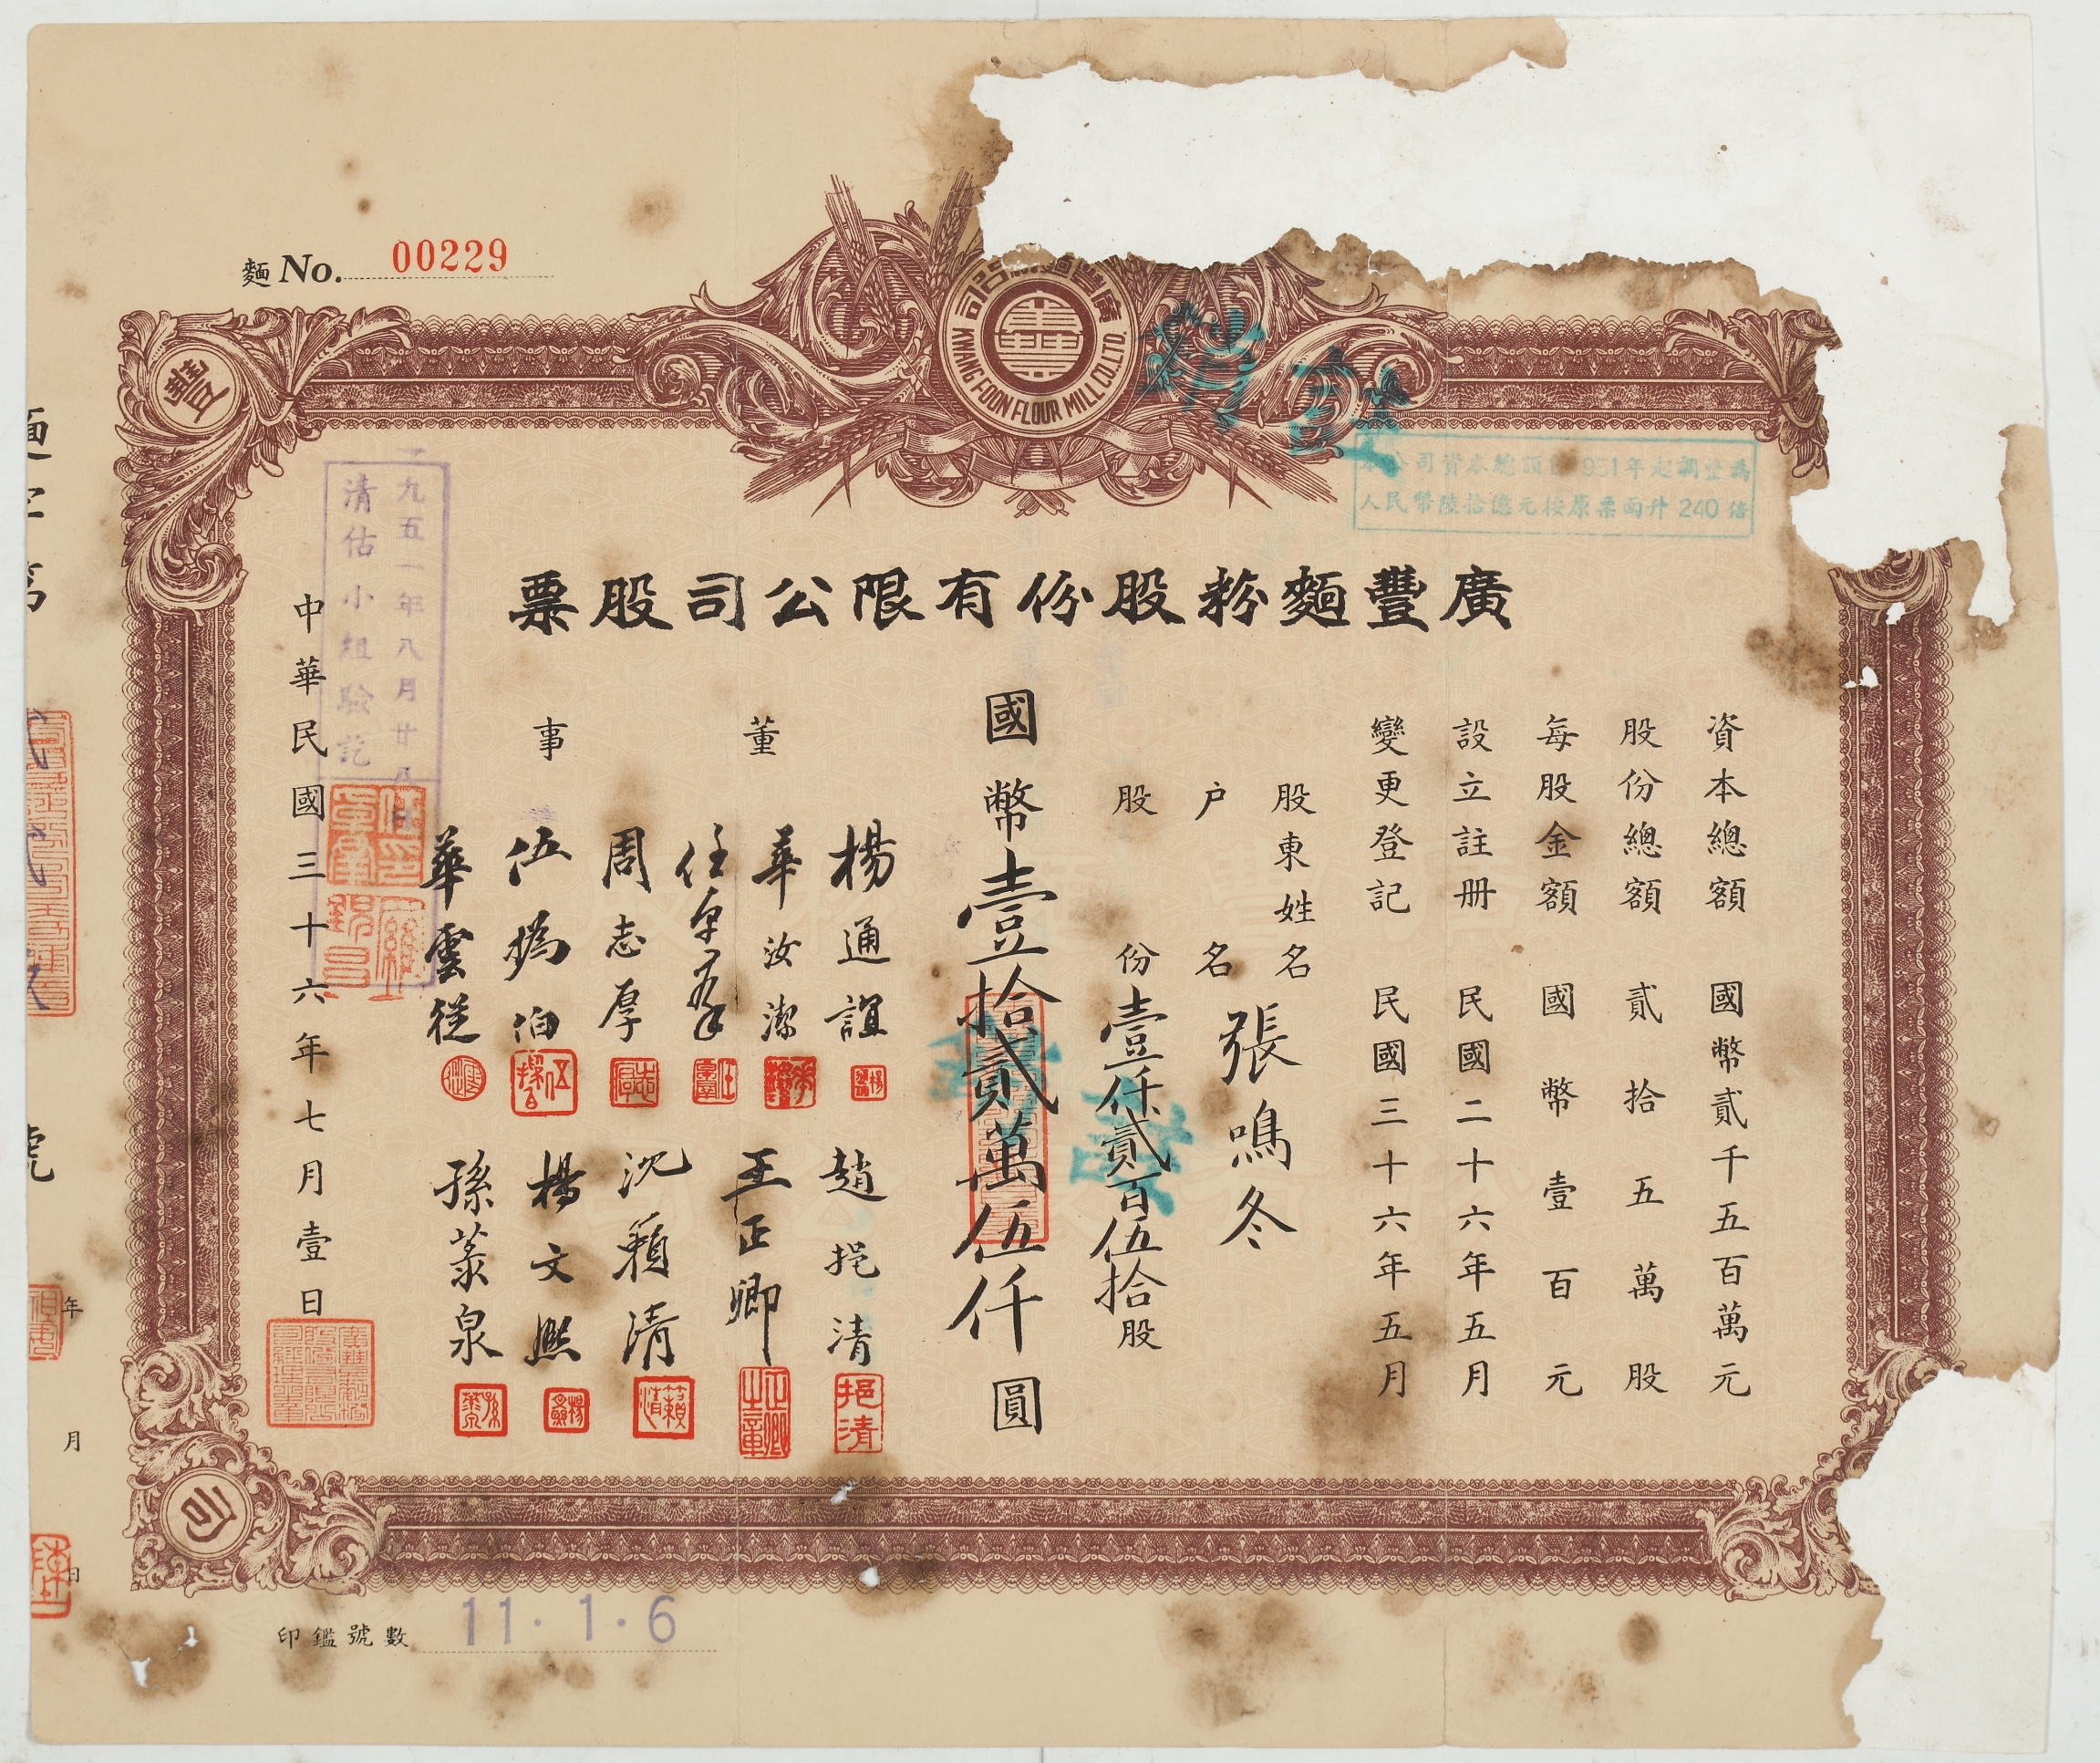 麵 No. 00229
司
廣豐麵
KWANG FOON FLOUR MILL CO. LTD.
豐
司
本公司資本總額自1951年起調整為
人民幣陸拾億元按原票面升240倍
廣豐麵粉股份有限公司股票
資本總額 國幣貳千五百萬元
股份總額 貳拾五萬股
每股金額 國幣壹百元
設立註册 民國二十六年五月
變更登記 民國三十六年五月
股東姓名
户名 張鳴冬
股份 壹仟貳百伍拾股
國幣壹拾貳萬伍仟圓
董事
楊通誼
華汝潔
任卓羣
周志厚
伍撝伯
華雲從
趙挹清
王正卿
沈籟清
楊文熙
孫蒃泉
中華民國三十六年七月壹日
一九五一年八月廿八日
清估小組驗訖
挹清
印鑑號數 11.1.6
號
年
月
日